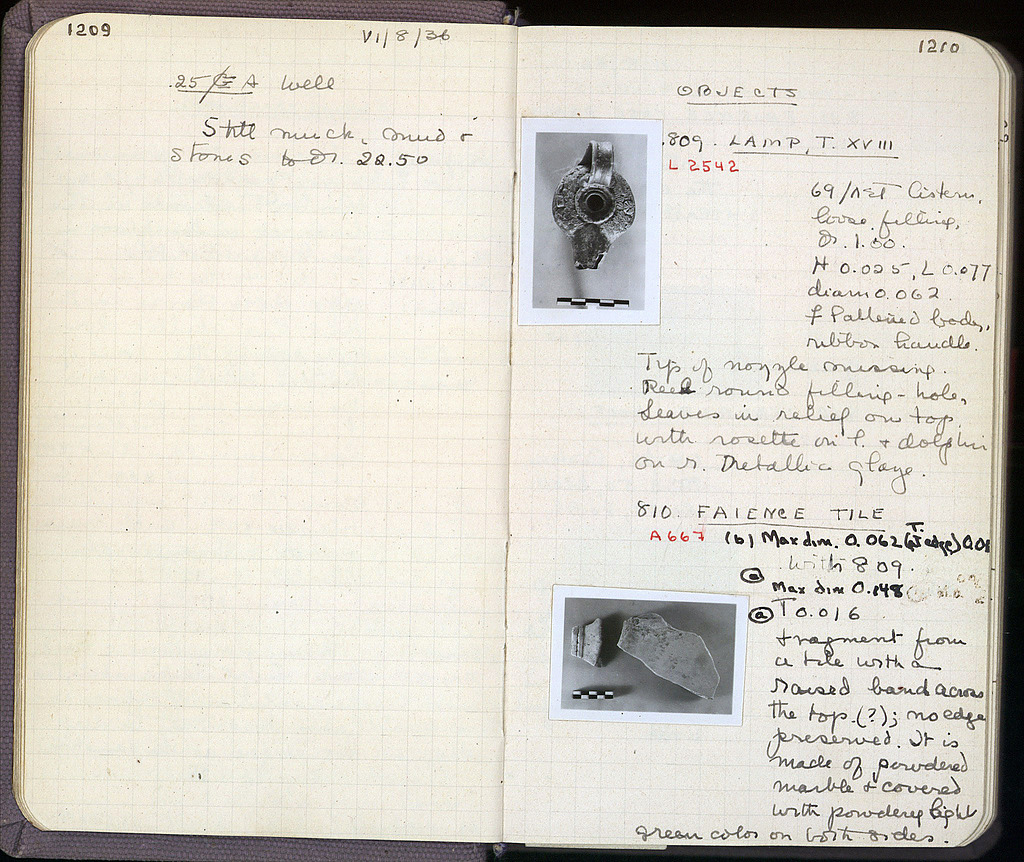 1209
VI/8/36
25 A Well
Still muck, mud &
stones to Dr. 22.50
1210
OBJECTS
809. LAMP, T. XVIII
L 2542
69/ΛΣΤ Cistern,
loose filling,
Dr. 1.00.
H 0.025, L 0.077
diam 0.062.
flattened body,
ribbon handle.
Tip of nozzle missing.
Reel round filling-hole,
leaves in relief on top
with rosette on l. & dolphin
on r. Metallic glaze.
810. FAIENCE TILE
A 667 (b) Max dim. 0.062 (T. edge)
with 809.
(a) Max dim 0.148
(a) T 0.016
fragment from
a tile with a
raised band across
the top (?); no edge
preserved. It is
made of powdered
marble & covered
with powdery light
green color on both sides.